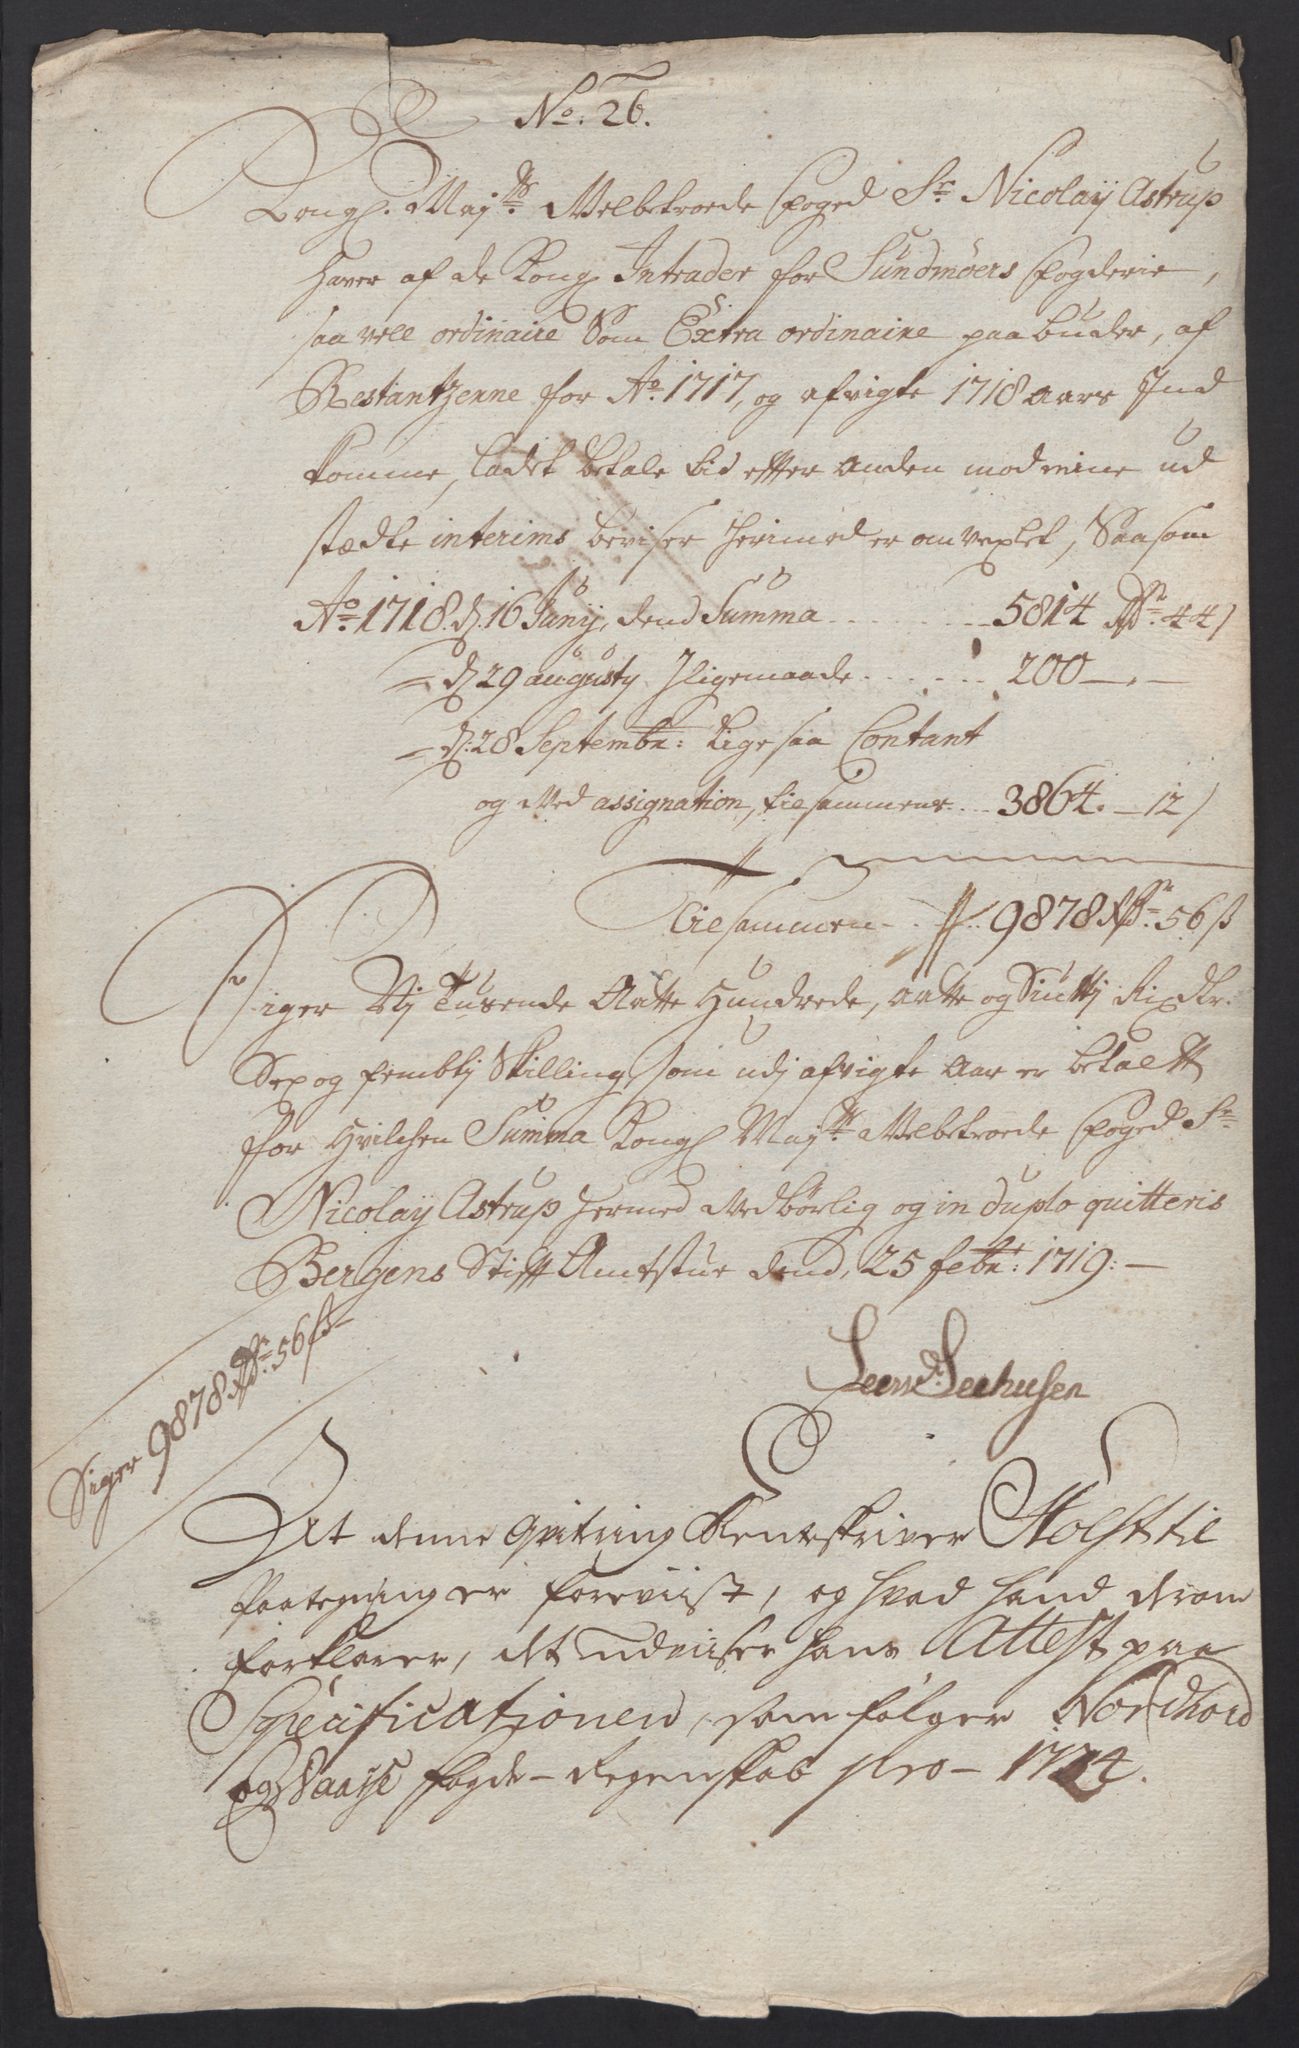 No. 26.
Kongl. Maj:ts Velbetroede Foged Sr. Nicolaÿ Astrup
haver af de Kongl Intrader for Sundmøers Fogderie,
saa vell ordinaire Som Extra ordinaire paabuder, af
Restantzerne for Ao. 1717, og afvigte 1718 aars Ind
komme, ladet betale tid efter anden mod mine ud
stædte interims beviser herimod er omvexlet, Saasom
Ao. 1718. d. 16 Junij, dend Summa . . . . . . 5814 Rdr. 44 /
- d 29 augusty Jligemaade . . . . . . 200 — . —
- d. 28 Septembr: Ligesaa Contant
og Med assignation, tilsammens . . 3864. — 12 /
Tilsammen . . 9878 Rdr. 56 ß
Siger Nj Tusende Aatte Hundrede, aatte og Siutti Rixdlr.
Sex og femtj Skilling, som udj afvigte Aar er betalt
for hvilchen Summa Kongl Maj:ts Velbetroede Foged Sr
Nicolaÿ Astrup hermed Vedbørlig og in duplo quitteris
Bergens Stifft Amtstue dend, 25 febr: 1719: —
Siger 9878 Rdr. 56 ß
Seehusen
At denne Qvitring Rentskriver Holst til
Paategning er foreviist, og hvad hand derom
forklarer, det udviiser hans Attest paa
Specificationen, som følger Nordhord
og Vaass fogde-Regenskab pro - 1714.